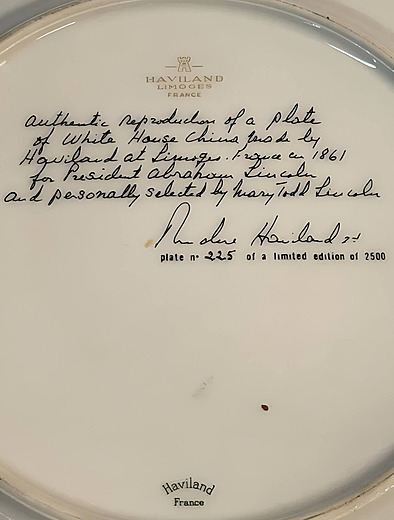 HAVILAND
LIMOGES
FRANCE
authentic reproduction of a plate
of White House China made by
Haviland at Limoges. France in 1861
for President Abraham Lincoln
and personally selected by Mary Todd Lincoln
Haviland
plate n° 225 of a limited edition of 2500
Haviland
France